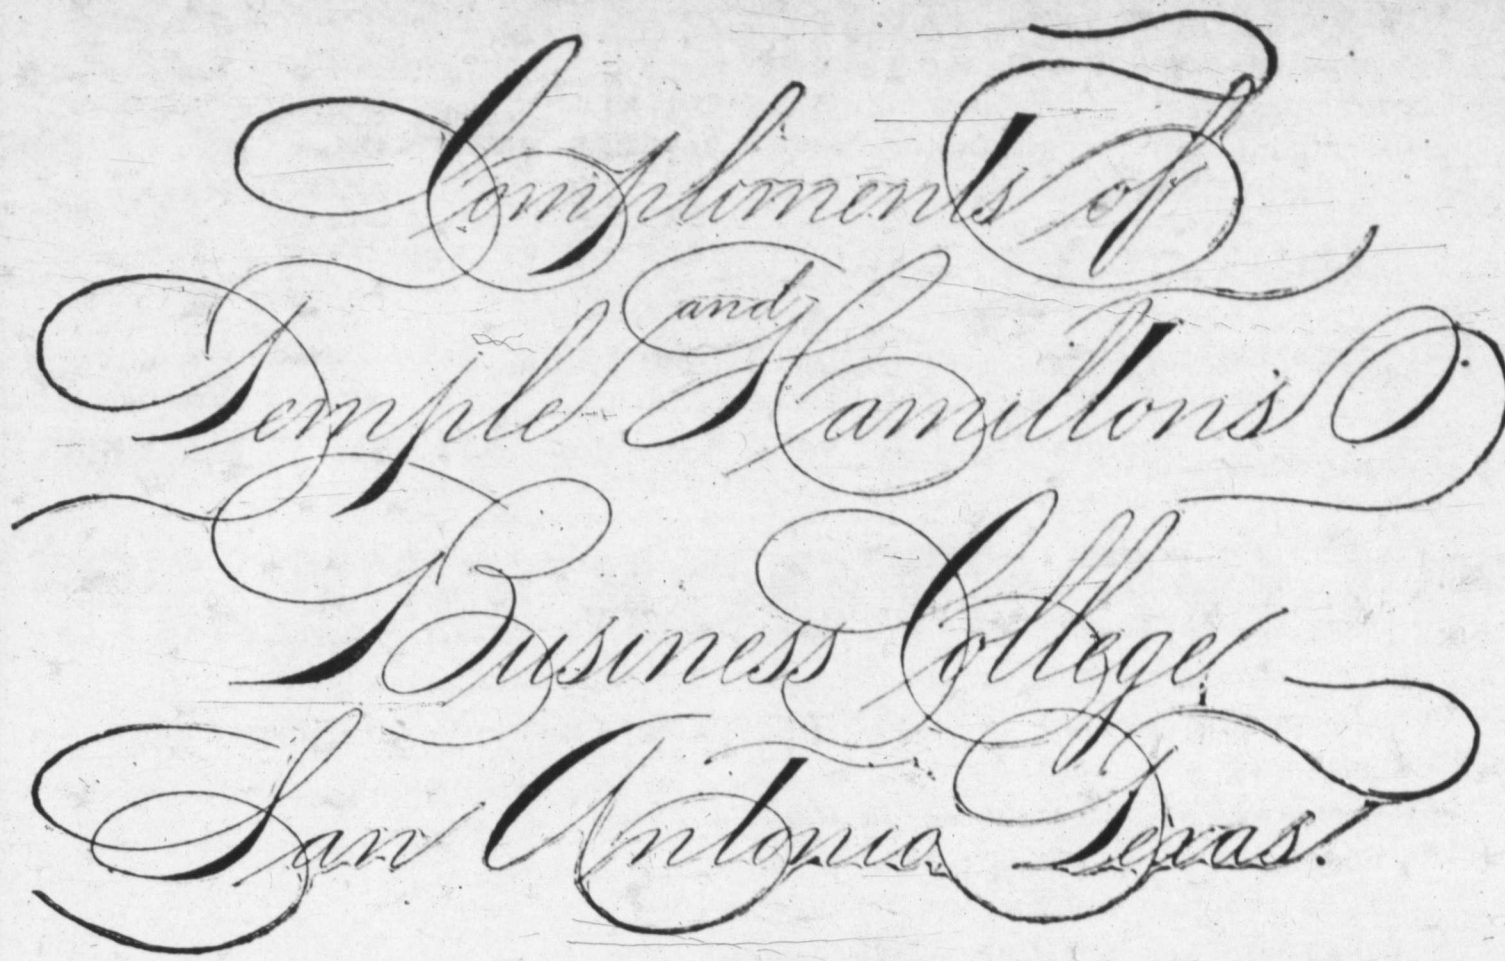 Compliments of
Temple and Hamilton's
Business College
San Antonio Texas.